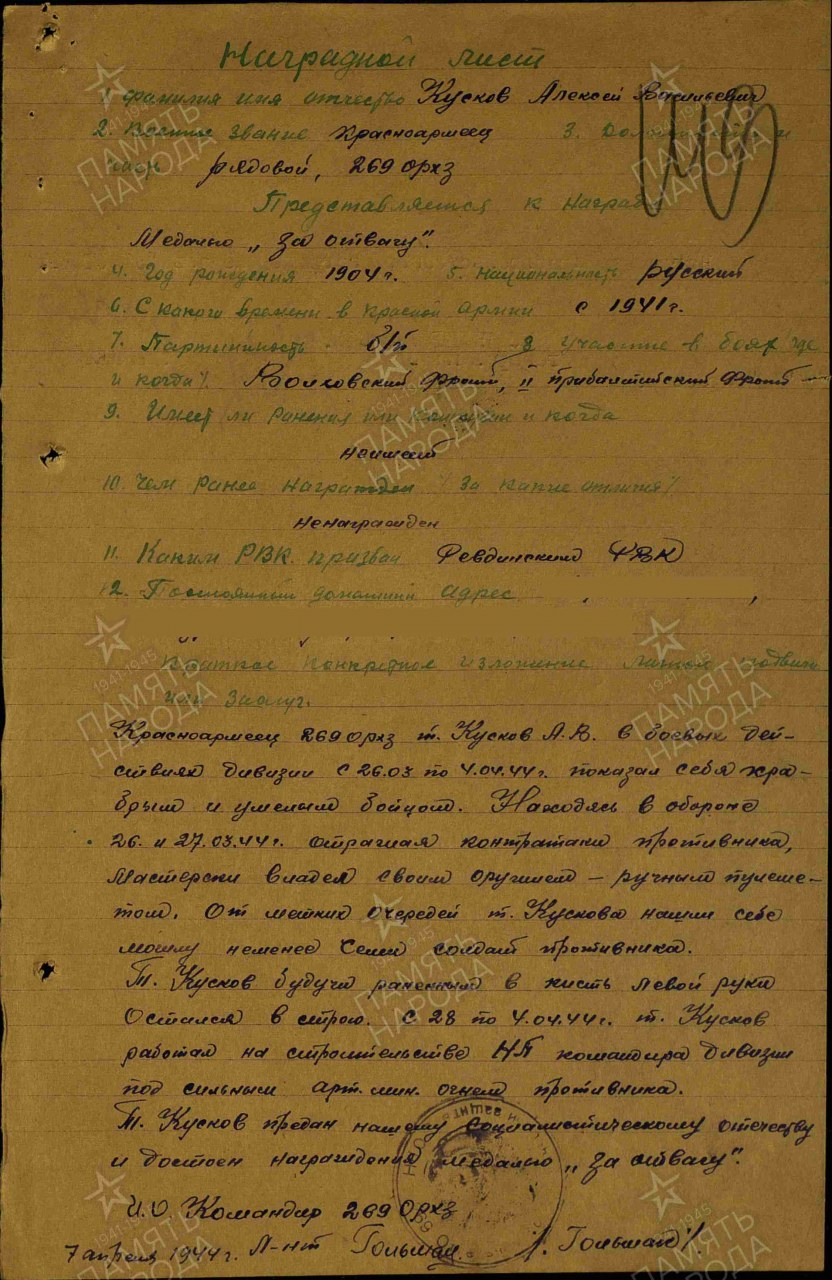 Наградной лист
1. фамилия имя отчество Кусков Алексей Васильевич
2. Военное звание Красноармеец 3. Должность и
часть рядовой, 269 орхз
Представляется к награде
Медалью „За отвагу".
4. Год рождения 1904 г. 5. Национальность русский
6. С какого времени в красной армии с 1941 г.
7. Партийность б/п 8 участие в боях где
и когда Волховский фронт, II прибалтийский фронт
9. Имеет ли ранения или контузии и когда
неимеет
10. Чем ранее награжден / За какие отличия /
ненагражден
11. Каким РВК призван Ревдинским РВК
12. Постоянный домашний адрес
Краткое конкретное изложение личного подвига
или заслуг.
Красноармеец 269 орхз т. Кусков А.В. в боевых дей-
ствиях дивизии с 26.03 по 4.04.44 г. показал себя хра-
брым и умелым бойцом. Находясь в обороне
26. и 27.03.44 г. отражая контратаки противника,
мастерски владел своим оружием – ручным пулеме-
том. От метких очередей т. Кускова нашли себе
могилу неменее семи солдат противника.
Т. Кусков будучи раненным в кисть левой руки
остался в строю. с 28 по 4.04.44 г. т. Кусков
работал на строительстве НП командира дивизии
под сильным арт. мин. огнем противника.
Т. Кусков предан нашему социалистическому отечеству
и достоен награждения медалью „За отвагу".
И.О Командир 269 орхз
7 апреля 1944 г. Л-нт Гольман. /. Гольман /.
ПАМЯТЬ НАРОДА
1941-1945